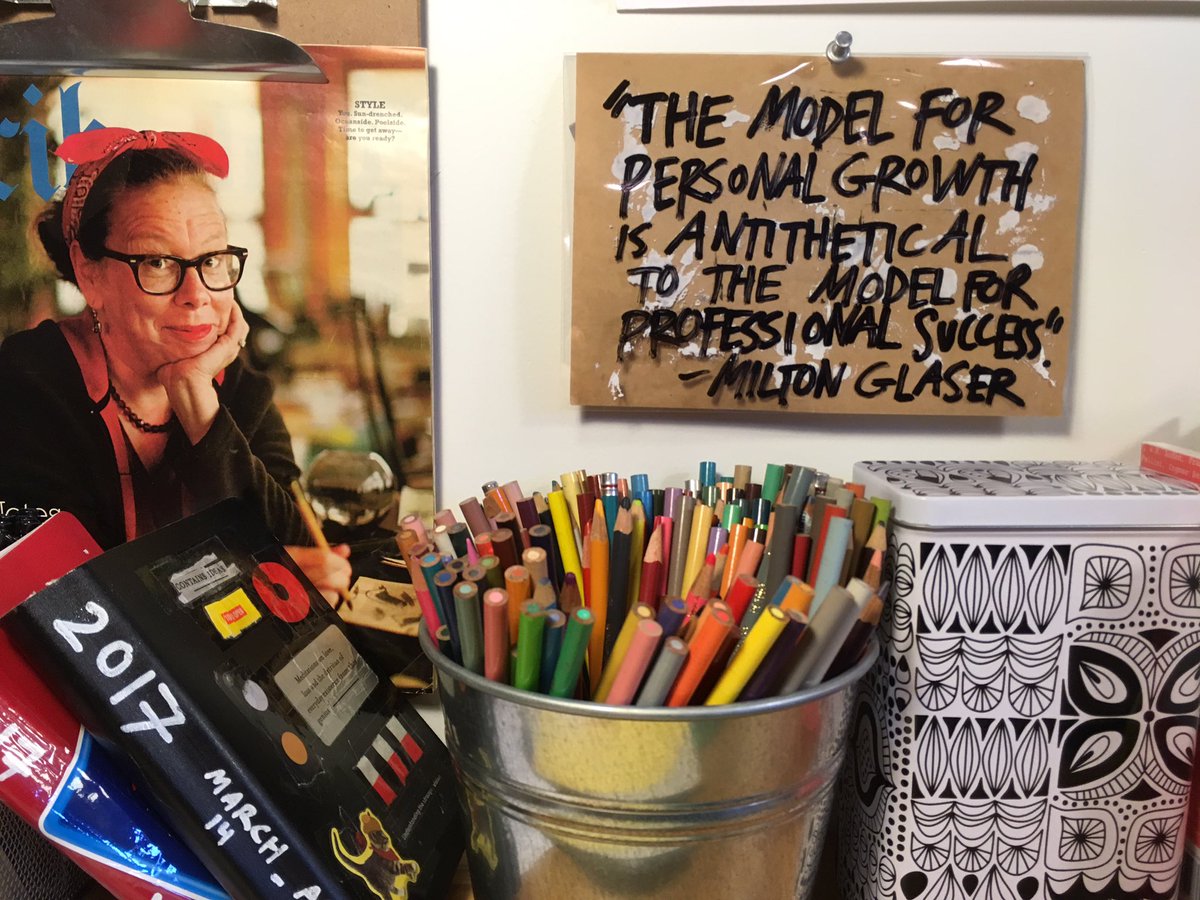 STYLE
You. Sun-drenched.
Oceanside. Poolside.
Time to get away—
are you ready?
"THE MODEL FOR
PERSONAL GROWTH
IS ANTITHETICAL
TO THE MODEL FOR
PROFESSIONAL SUCCESS"
-MILTON GLASER
CONTAINS IDEAS
Meditations on love,
loss and the detritus of
2017
MARCH - A
14